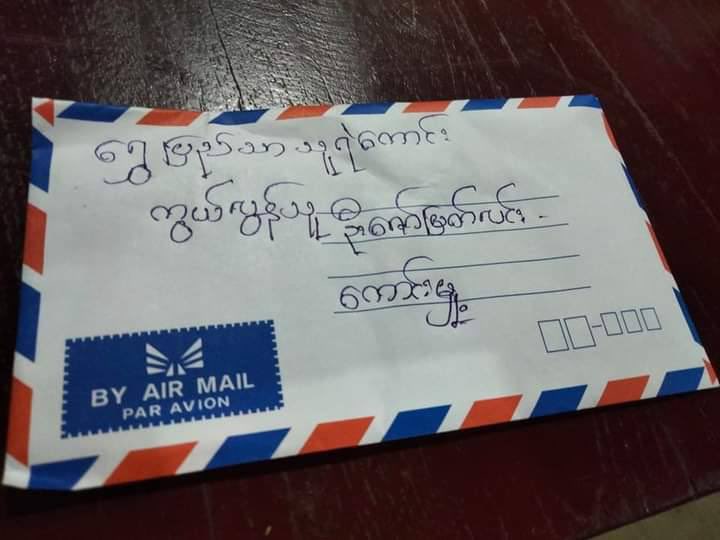 ရွှေပြည်သာ သူရဲကောင်း
ကွယ်လွန်သူ ဦးဇော်မြတ်လင်း
ကောင်းမှု
BY AIR MAIL
PAR AVION